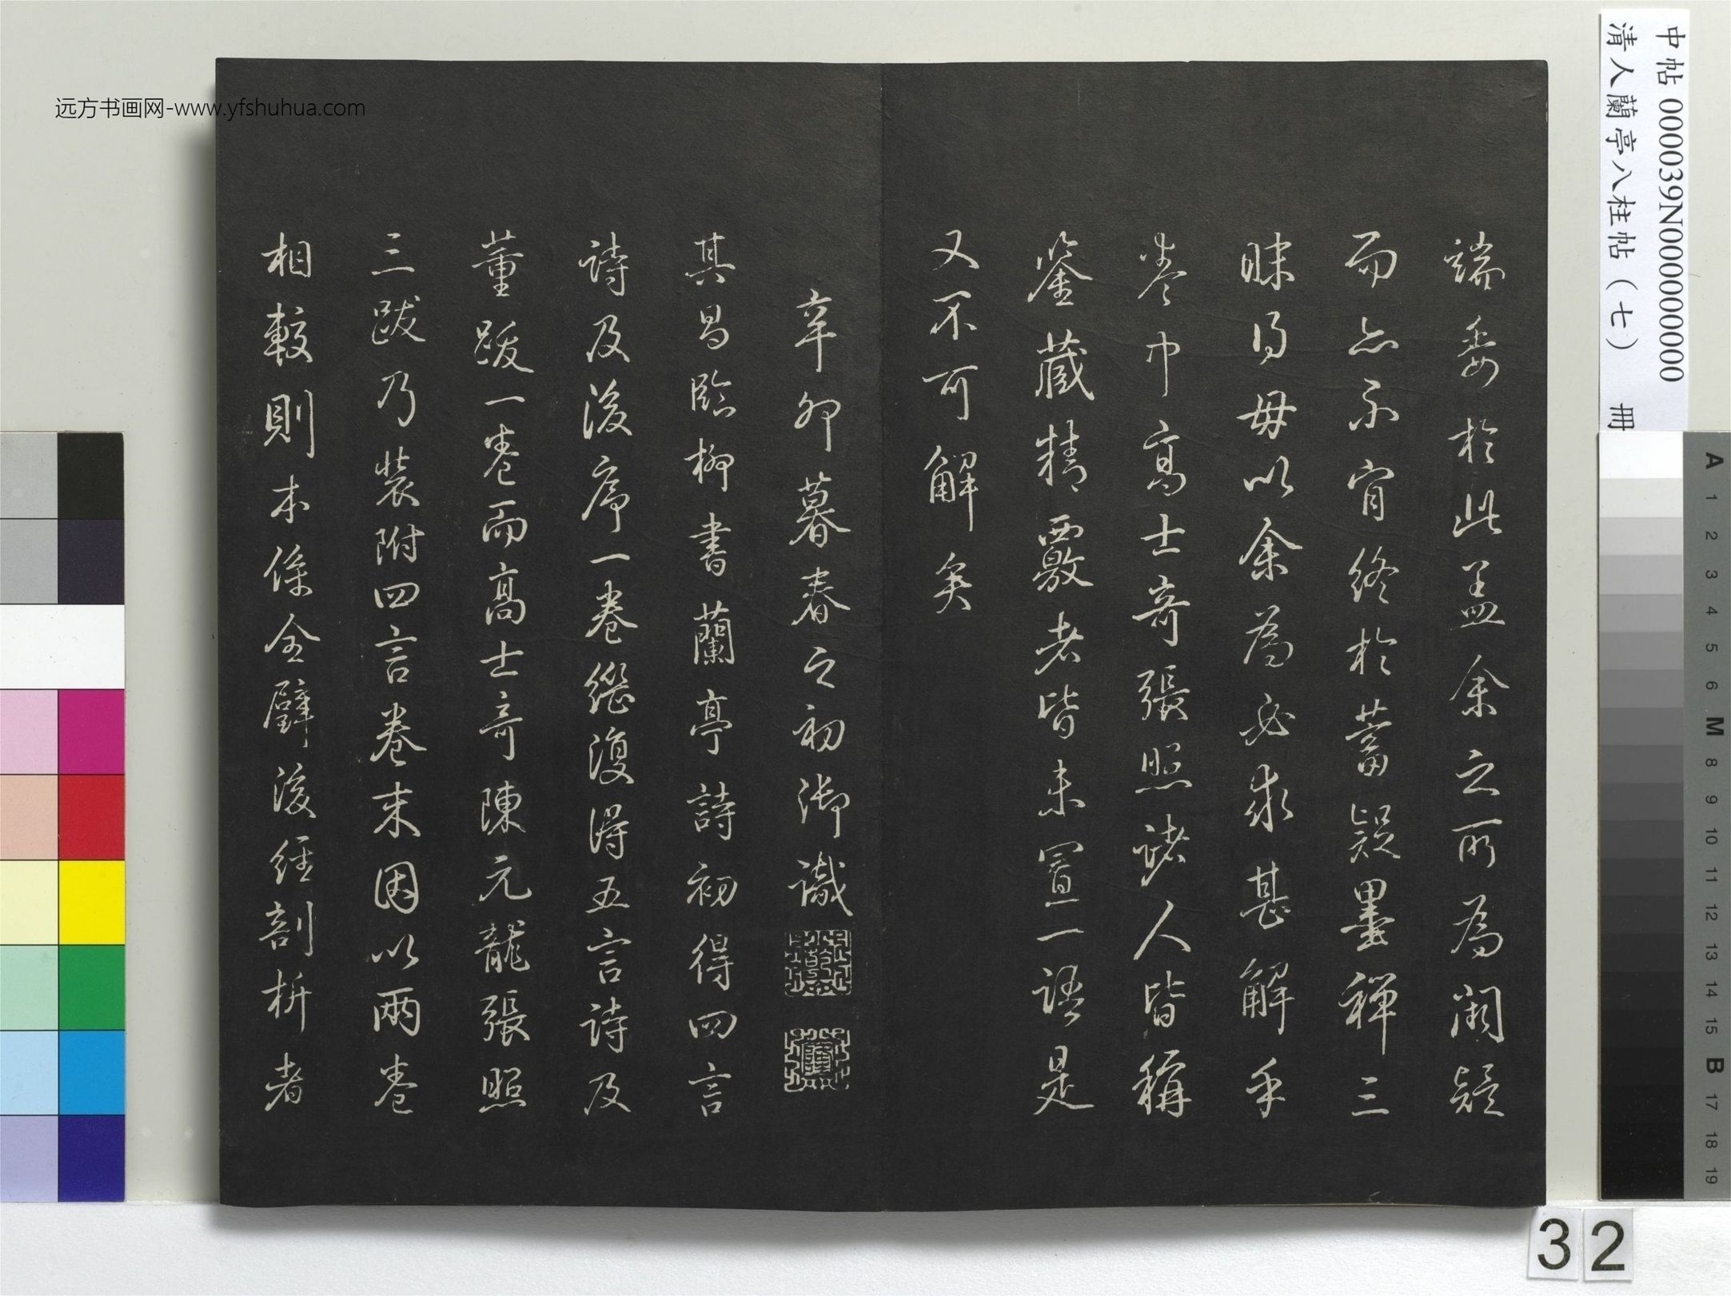 中帖 000039N000000000
清人蘭亭八柱帖（七） 冊
远方书画网-www.yfshuhua.com
端委於此盖余之所為闕疑
而亦不肯終於蓄疑墨禪三
昧得毋以余為必求甚解乎
卷中高士奇張照諸人皆稱
鑒藏精覈者皆未置一語是
又不可解矣
辛卯暮春之初御識
其昌臨柳書蘭亭詩初得四言
詩及後序一卷繼復得五言詩及
董跋一卷而高士奇陳元龍張照
三跋乃裝附四言卷末因以兩卷
相較則本係全璧後經剖析者
A 1 2 3 4 5 6 M 8 9 10 11 12 13 14 15 B 17 18 19
32